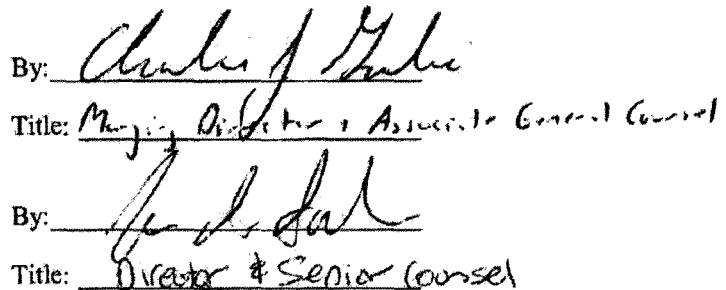 By: Charles J
Title: Managing Director & Associate General Counsel
By:
Title: Director & Senior Counsel